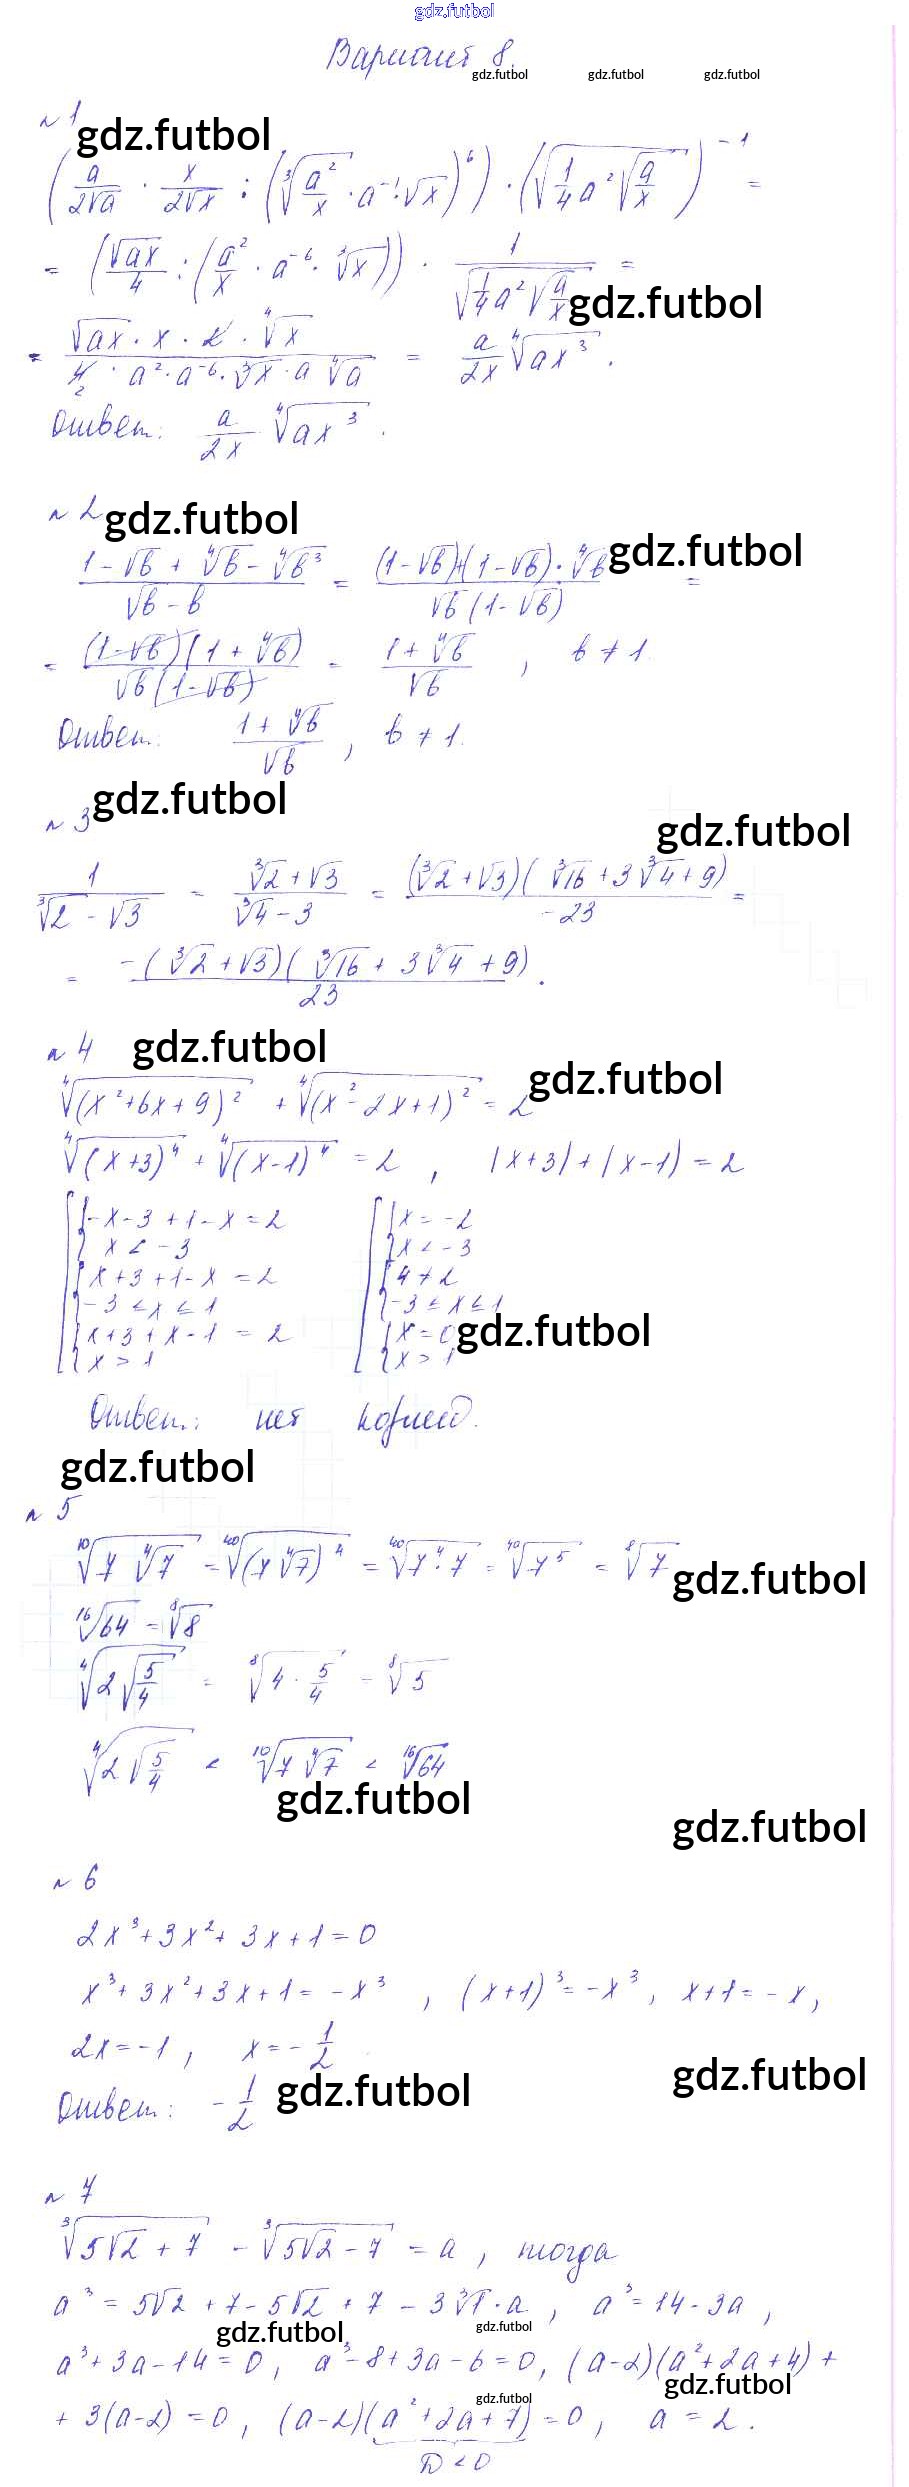 gdz.futbol
Вариант 8.
gdz.futbol gdz.futbol gdz.futbol
№1
gdz.futbol
(a/(2√a) · x/(2√x) : (∛(a²/x) · a⁻¹ · √x)⁶) · (√(1/4 a² √(a/x)))⁻¹ =
= (√(ax)/4 : (a²/x · a⁻⁶ · ∛x)) · 1/√(1/4 a² √(a/x)) =
gdz.futbol
= (√(ax) · x · 2 · ⁴√x)/(4 · a² · a⁻⁶ · ∛x · a ⁴√a) = a/(2x) ⁴√(ax³).
Ответ: a/(2x) ⁴√(ax³).
№2
gdz.futbol
gdz.futbol
(1 - √b + ⁴√b - ⁴√b³)/(√b - b) = ((1-√b)+(1-√b) · ⁴√b)/(√b(1-√b)) =
= ((1-√b)(1+⁴√b))/(√b(1-√b)) = (1+⁴√b)/√b, b ≠ 1.
Ответ: (1+⁴√b)/√b, b ≠ 1.
№3
gdz.futbol
gdz.futbol
1/(∛2 - √3) = (∛2+√3)/(∛4-3) = ((∛2+√3)(∛16+3∛4+9))/(-23) =
= (-(∛2+√3)(∛16+3∛4+9))/23.
№4
gdz.futbol
gdz.futbol
⁴√(x²+6x+9)² + ⁴√(x²-2x+1)² = 2
⁴√(x+3)⁴ + ⁴√(x-1)⁴ = 2, |x+3|+|x-1| = 2
[ { -x-3+1-x=2 [ { x=-2
x < -3 x < -3
{ x+3+1-x=2 { 4≠2
-3 ≤ x ≤ 1 -3 ≤ x ≤ 1
{ x+3+x-1=2 { x=0
gdz.futbol
x > 1 x > 1
Ответ: нет корней.
gdz.futbol
№5
¹⁰√(7 ⁴√7) = ⁴⁰√(7 ⁴√7)⁴ = ⁴⁰√(7⁴·7) = ⁴⁰√7⁵ = ⁸√7
gdz.futbol
¹⁶√64 = ⁸√8
⁴√(2√(5/4)) = ⁸√(4 · 5/4) = ⁸√5
⁴√(2√(5/4)) < ¹⁰√(7 ⁴√7) < ¹⁶√64
gdz.futbol
gdz.futbol
№6
2x³+3x²+3x+1=0
x³+3x²+3x+1=-x³, (x+1)³=-x³, x+1=-x,
2x=-1, x=-1/2
gdz.futbol
gdz.futbol
Ответ: -1/2
№7
∛(5√2+7) - ∛(5√2-7) = a, тогда
a³ = 5√2+7-5√2+7-3∛1·a, a³=14-3a,
gdz.futbol
a³+3a-14=0, a³-8+3a-6=0, (a-2)(a²+2a+4)+
gdz.futbol
gdz.futbol
+3(a-2)=0, (a-2)(a²+2a+7)=0, a=2.
D<0